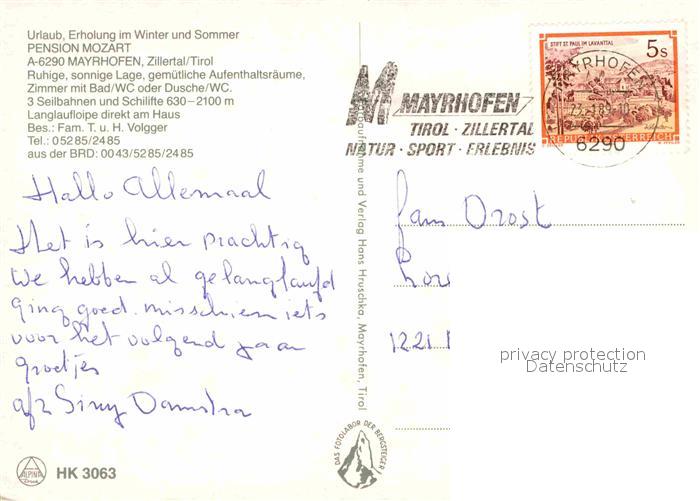 Urlaub, Erholung im Winter und Sommer
PENSION MOZART
A-6290 MAYRHOFEN, Zillertal/Tirol
Ruhige, sonnige Lage, gemütliche Aufenthaltsräume,
Zimmer mit Bad/WC oder Dusche/WC.
3 Seilbahnen und Schilifte 630–2100 m
Langlaufloipe direkt am Haus
Bes.: Fam. T. u. H. Volgger
Tel.: 0 52 85 / 24 85
aus der BRD: 00 43/52 85 / 24 85
Hallo Allemaal
Het is hier prachtig
We hebben al gelanglaufd
ging goed. misschien iets
voor het volgend jaar
groetjes
Siny Damstra
HK 3063
ALPINA
Verlag Hans Hruschka, Mayrhofen, Tirol
DAS FOTOLABOR DER BERGSTEIGER
M MAYRHOFEN
TIROL · ZILLERTAL
NATUR · SPORT · ERLEBNIS
STIFT ST. PAUL IM LAVANTTAL
5 S
REPUBLIK ÖSTERREICH
MAYRHOFEN
6290
Fam Drost
1221
privacy protection
Datenschutz